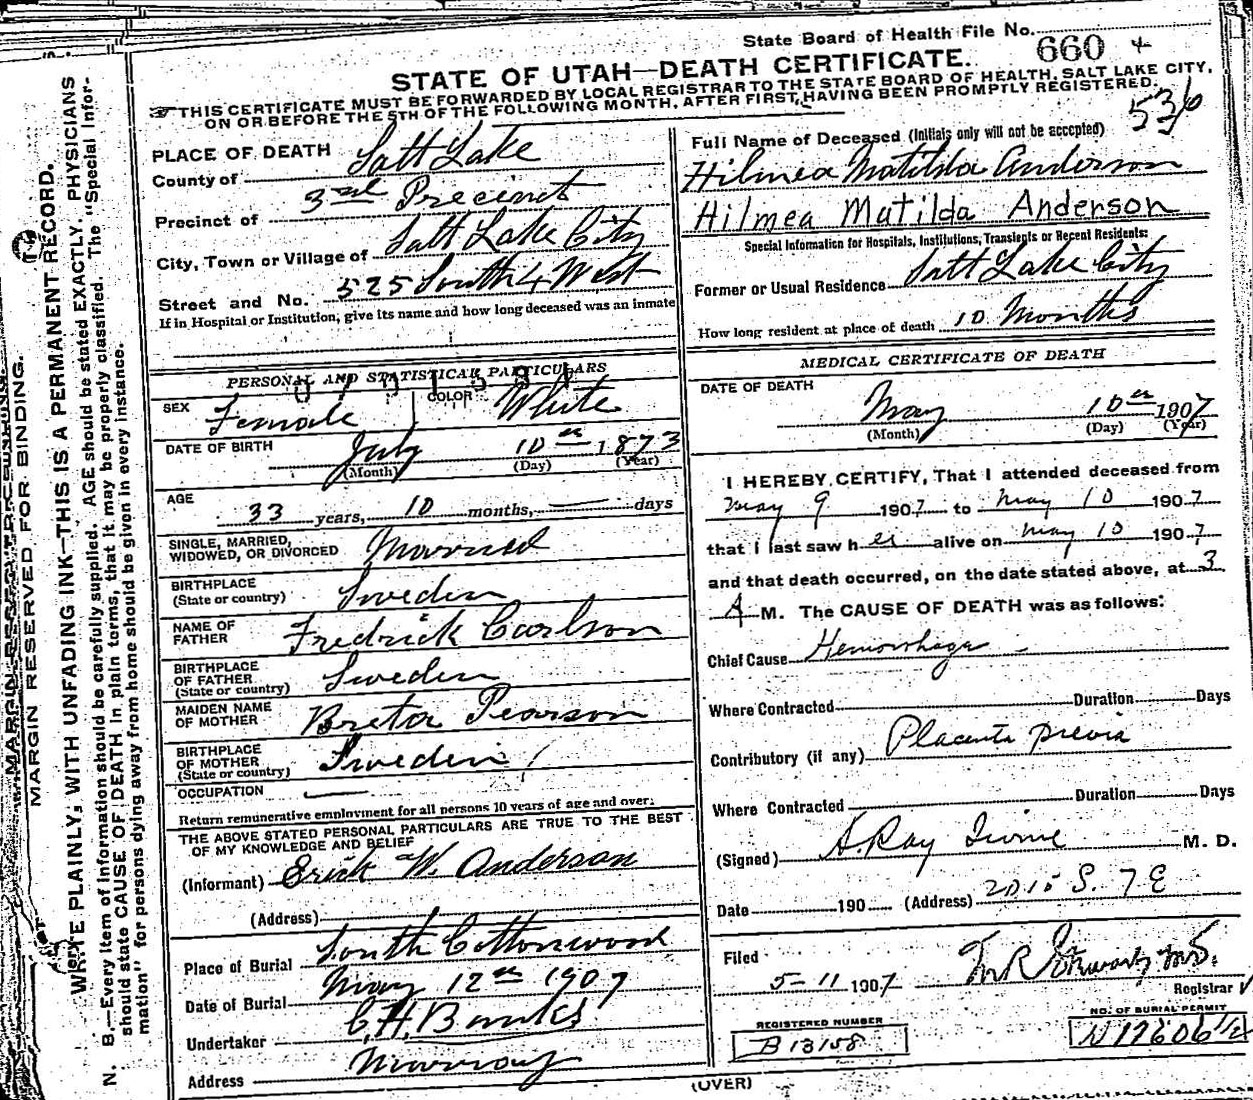 State Board of Health File No. 660 4
STATE OF UTAH—DEATH CERTIFICATE.
THIS CERTIFICATE MUST BE FORWARDED BY LOCAL REGISTRAR TO THE STATE BOARD OF HEALTH, SALT LAKE CITY,
ON OR BEFORE THE 5TH OF THE FOLLOWING MONTH, AFTER FIRST HAVING BEEN PROMPTLY REGISTERED.
536
MARGIN RESERVED FOR BINDING.
WRITE PLAINLY, WITH UNFADING INK—THIS IS A PERMANENT RECORD.
N. B.—Every item of information should be carefully supplied. AGE should be stated EXACTLY. PHYSICIANS
should state CAUSE OF DEATH in plain terms, that it may be properly classified. The "Special Infor-
mation" for persons dying away from home should be given in every instance.
PLACE OF DEATH
County of Salt Lake
Precinct of 3rd Precinct
City, Town or Village of Salt Lake City
Street and No. 525 South 4 West
If in Hospital or Institution, give its name and how long deceased was an inmate
PERSONAL AND STATISTICAL PARTICULARS
SEX Female COLOR White
DATE OF BIRTH July 10th 1873
(Month) (Day) (Year)
AGE 33 years, 10 months, — days
SINGLE, MARRIED,
WIDOWED, OR DIVORCED Married
BIRTHPLACE
(State or country) Sweden
NAME OF
FATHER Fredrick Carlson
BIRTHPLACE
OF FATHER
(State or country) Sweden
MAIDEN NAME
OF MOTHER Breta Pearson
BIRTHPLACE
OF MOTHER
(State or country) Sweden
OCCUPATION —
Return remunerative employment for all persons 10 years of age and over.
THE ABOVE STATED PERSONAL PARTICULARS ARE TRUE TO THE BEST
OF MY KNOWLEDGE AND BELIEF
(Informant) Erick W. Anderson
(Address)
Place of Burial South Cottonwood
Date of Burial May 12th 1907
Undertaker C. H. Banks
Address Murray
Full Name of Deceased (Initials only will not be accepted)
Hilmea Matilda Anderson
Hilmea Matilda Anderson
Special Information for Hospitals, Institutions, Transients or Recent Residents:
Former or Usual Residence Salt Lake City
How long resident at place of death 10 Months
MEDICAL CERTIFICATE OF DEATH
DATE OF DEATH
May 10th 1907
(Month) (Day) (Year)
I HEREBY CERTIFY, That I attended deceased from
May 9 1907 to May 10 1907
that I last saw her alive on May 10 1907
and that death occurred, on the date stated above, at 3
A M. The CAUSE OF DEATH was as follows:
Chief Cause Hemorrhage
Where Contracted Duration Days
Contributory (if any) Placenta previa
Where Contracted Duration Days
(Signed) A Ray Irvine M. D.
Date 190 (Address) 2010 S. 7 E
Filed
5-11 1907
Registrar
REGISTERED NUMBER
B 13158
NO. OF BURIAL PERMIT
N 17606 1/2
(OVER)